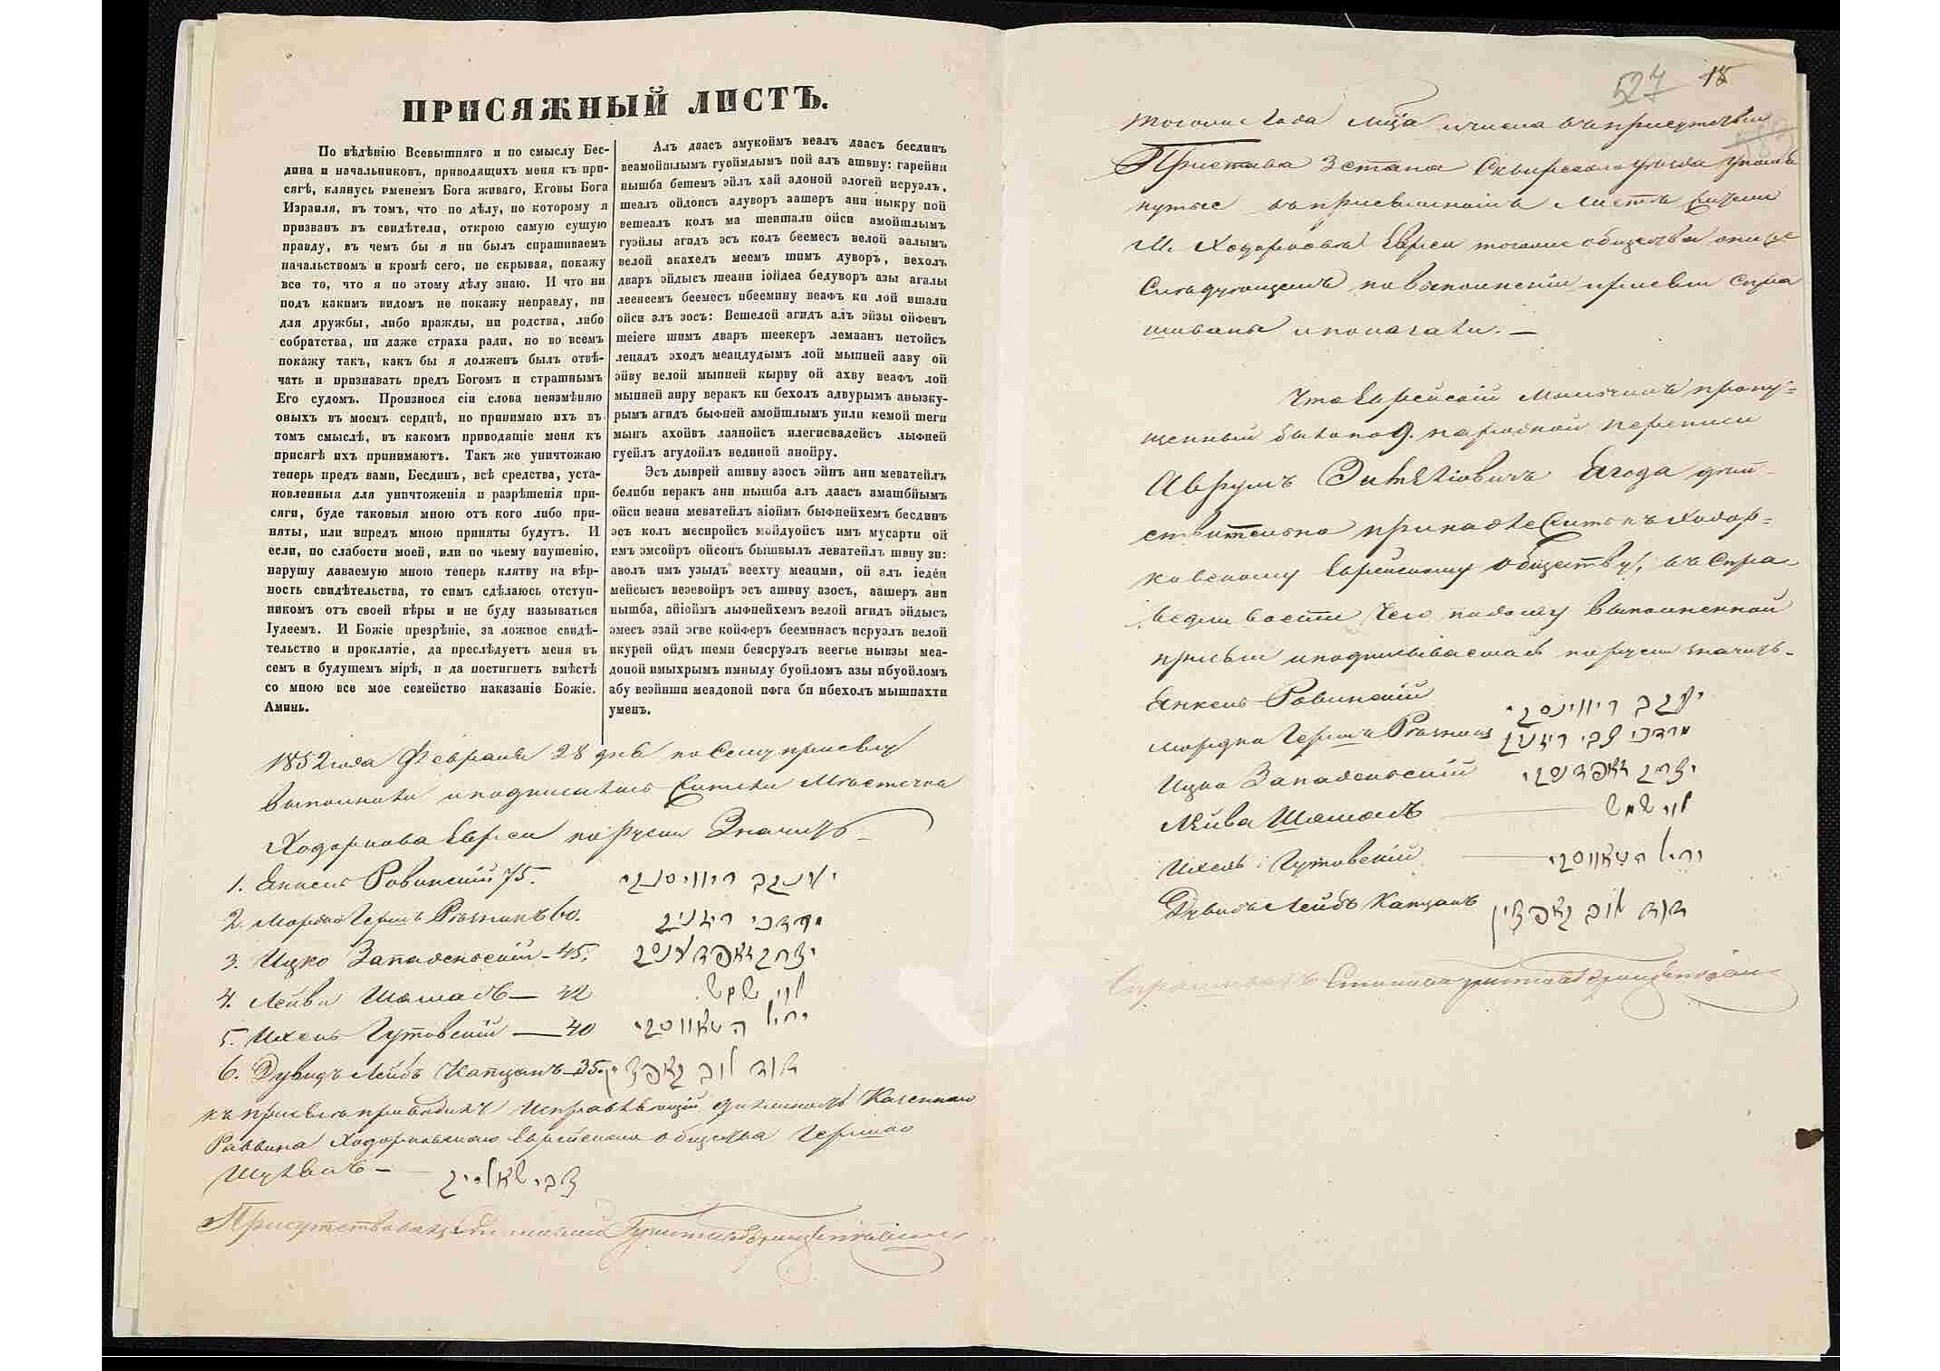 ПРИСЯЖНЫЙ ЛИСТЪ.
По вѣдѣнію Всевышняго и по смыслу Бес-
дина и начальниковъ, приводящихъ меня къ при-
сягѣ, клянусь именемъ Бога живаго, Еговы Бога
Израиля, въ томъ, что по дѣлу, по которому я
призванъ въ свидѣтели, открою самую сущую
правду, въ чемъ бы я ни былъ спрашиваемъ
начальствомъ и кромѣ сего, не скрывая, покажу
все то, что я по этому дѣлу знаю. И что ни
подъ какимъ видомъ не покажу неправду, ни
для дружбы, либо вражды, ни родства, либо
собратства, ни даже страха ради, но во всемъ
покажу такъ, какъ бы я долженъ былъ отвѣ-
чать и признавать предъ Богомъ и страшнымъ
Его судомъ. Произнося сіи слова неизмѣняю
оныхъ въ моемъ сердцѣ, но принимаю ихъ въ
томъ смыслѣ, въ какомъ приводящіе меня къ
присягѣ ихъ принимаютъ. Такъ же уничтожаю
теперь предъ вами, Бесдинъ, всѣ средства, уста-
новленныя для уничтоженія и разрѣшенія при-
сяги, буде таковыя мною отъ кого либо при-
няты, или впредъ мною приняты будутъ. И
если, по слабости моей, или по чьему внушенію,
нарушу даваемую мною теперь клятву на вѣр-
ность свидѣтельства, то симъ сдѣлаюсь отступ-
никомъ отъ своей вѣры и не буду называться
Іудеемъ. И Божіе презрѣніе, за ложное свидѣ-
тельство и проклятіе, да преслѣдуетъ меня въ
семъ и будущемъ мірѣ, и да постигнетъ вмѣстѣ
со мною все мое семейство наказаніе Божіе.
Аминь.
Алъ даасъ амукоймъ веалъ даасъ бесдинъ
веамойшлымъ гуоймлымъ пой алъ ашвну: гарейни
нышба бешемъ эйлъ хай адоной элогей исруэлъ,
шеалъ ойдойсъ адуворъ аашеръ ани ныкру пой
вешеалъ колъ ма шеишали ойси амойшлымъ
гуэйлы агидъ эсъ колъ беемесъ велой валымъ
велой акахедъ меемъ шимъ дуворъ, вехолъ
дваръ эйдысъ шеани іойдеа бедуворъ азы агалы
леенеемъ беемесъ ибеемину веафъ ки лой ишали
ойси элъ зосъ: Вешелой агидъ алъ эйзы ойфенъ
шеіеге шимъ дваръ шеекеръ лемаанъ нетойсъ
лецадъ эходъ меацдудымъ лой мыпней ааву ой
эйву велой мыпней кырву ой ахву веафъ лой
мыпней аиру веракъ ки бехолъ адвурымъ анызку-
рымъ агидъ быфней амойшлымъ уили кемой шеги
мынъ ахойвъ лаанойсъ илегисвадейсъ лыфней
гуейлъ агудойлъ вединой анойру.
Эсъ дыврей ашвну азосъ эйнъ ани меватейлъ
белиби веракъ ани нышба алъ даасъ амашбйымъ
ойси веани меватейлъ аіоймъ быфнейхемъ бесдинъ
эсъ колъ месиройсъ мойдуойсъ имъ мусарти ой
имъ эмсойръ ойсонъ бышвылъ леватейлъ швну зи:
аволъ имъ узыдъ веехту меацми, ой алъ іедей
мейсысъ везевойръ эсъ ашвну азосъ, аашеръ ани
нышба, айіоймъ лыфнейхемъ велой агидъ эйдысъ
эмесъ эзай эгве койферъ бееминасъ исруэлъ велой
икурей ойдъ шеми беисруэлъ веегье нывзы меа-
доной имыхрымъ имныду буойломъ азы ибуойломъ
абу веэйнши меадоной ифга би ибехолъ мышпахти
уменъ.
1852 года Февраля 28 дня по сему присягу
выполнили и подписались Жители Мѣстечка
Ходоркова Евреи по руски Значитъ
1. Янкель Ровинскій 75.
2. Мордко Гершъ 60.
3. Ицко Западенскій - 45.
4. Лейва Шамашъ — 42
לוי שמש
5. Ихель Гутовскій — 40
6. Дувидъ Лейбъ Капцанъ - 35.
къ присягѣ приводилъ Исправляющій должность Казеннаго
Раввина Ходорковскаго Еврейскаго общества Гершко
527 18
тогоже Года мѣсяца и числа въ присутствіи
Пристава 3 стана Сквирскаго уѣзда упомя
нутые въ присяжномъ листѣ Жители
М. Ходоркова Евреи тогоже общества
по выполненіи присяги спра
шиваны и показали. —
Что Еврейскій Мальчикъ пропу-
щенный были по 9. народной переписи
Аврумъ Ягода дѣй-
ствительно принадлежитъ къ Ходор-
ковскому Еврейскому обществу, въ спра-
ведливости чего подъ сему выполненной
присяги и подписываемся по руски значитъ-
Янкель Ровинскій
Мордко Гершъ
מרדכי צבי
Ицко Западенскій
Лейва Шамашъ
לוי שמש
Ихель Гутовскій
Дувидъ Лейбъ Капцанъ